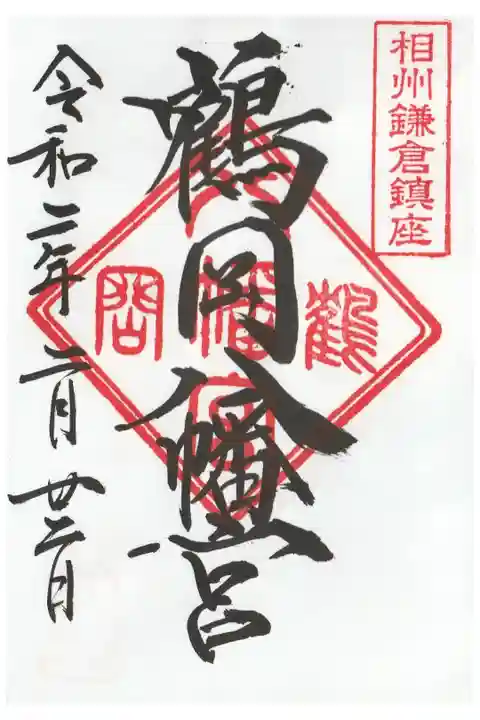 相州鎌倉鎮座
鶴岡八幡宮
鶴
岡
八
幡
宮
令和二年二月廿三日